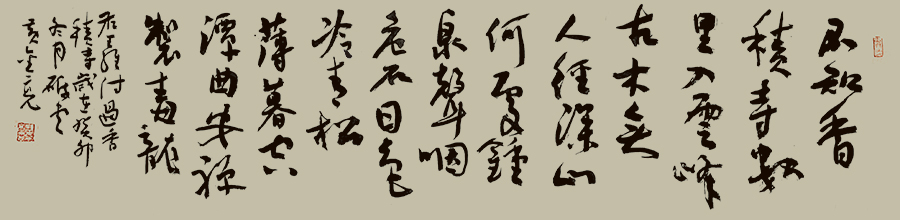 不知香
積寺數
里入雲峰
古木無
人徑深山
何處鐘
泉聲咽
危石日色
冷青松
薄暮空
潭曲安禪
製毒龍
王維詩過香
積寺歲在癸卯
冬月
黃金亮